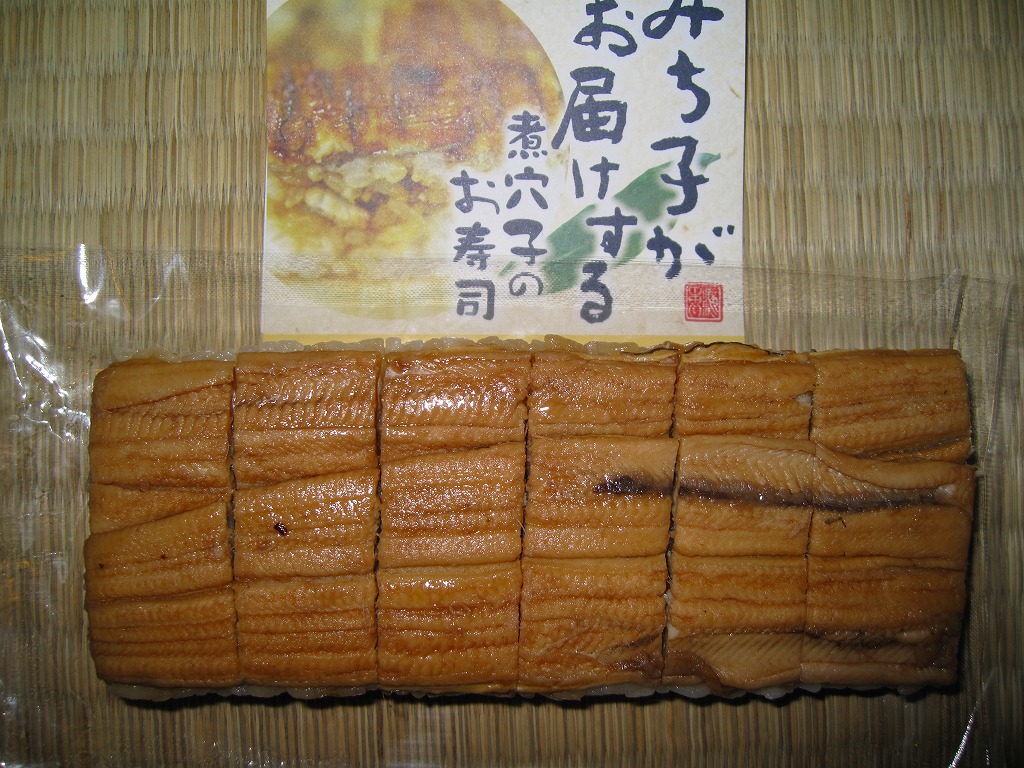 みち子が
お届けする
煮穴子の
お寿司